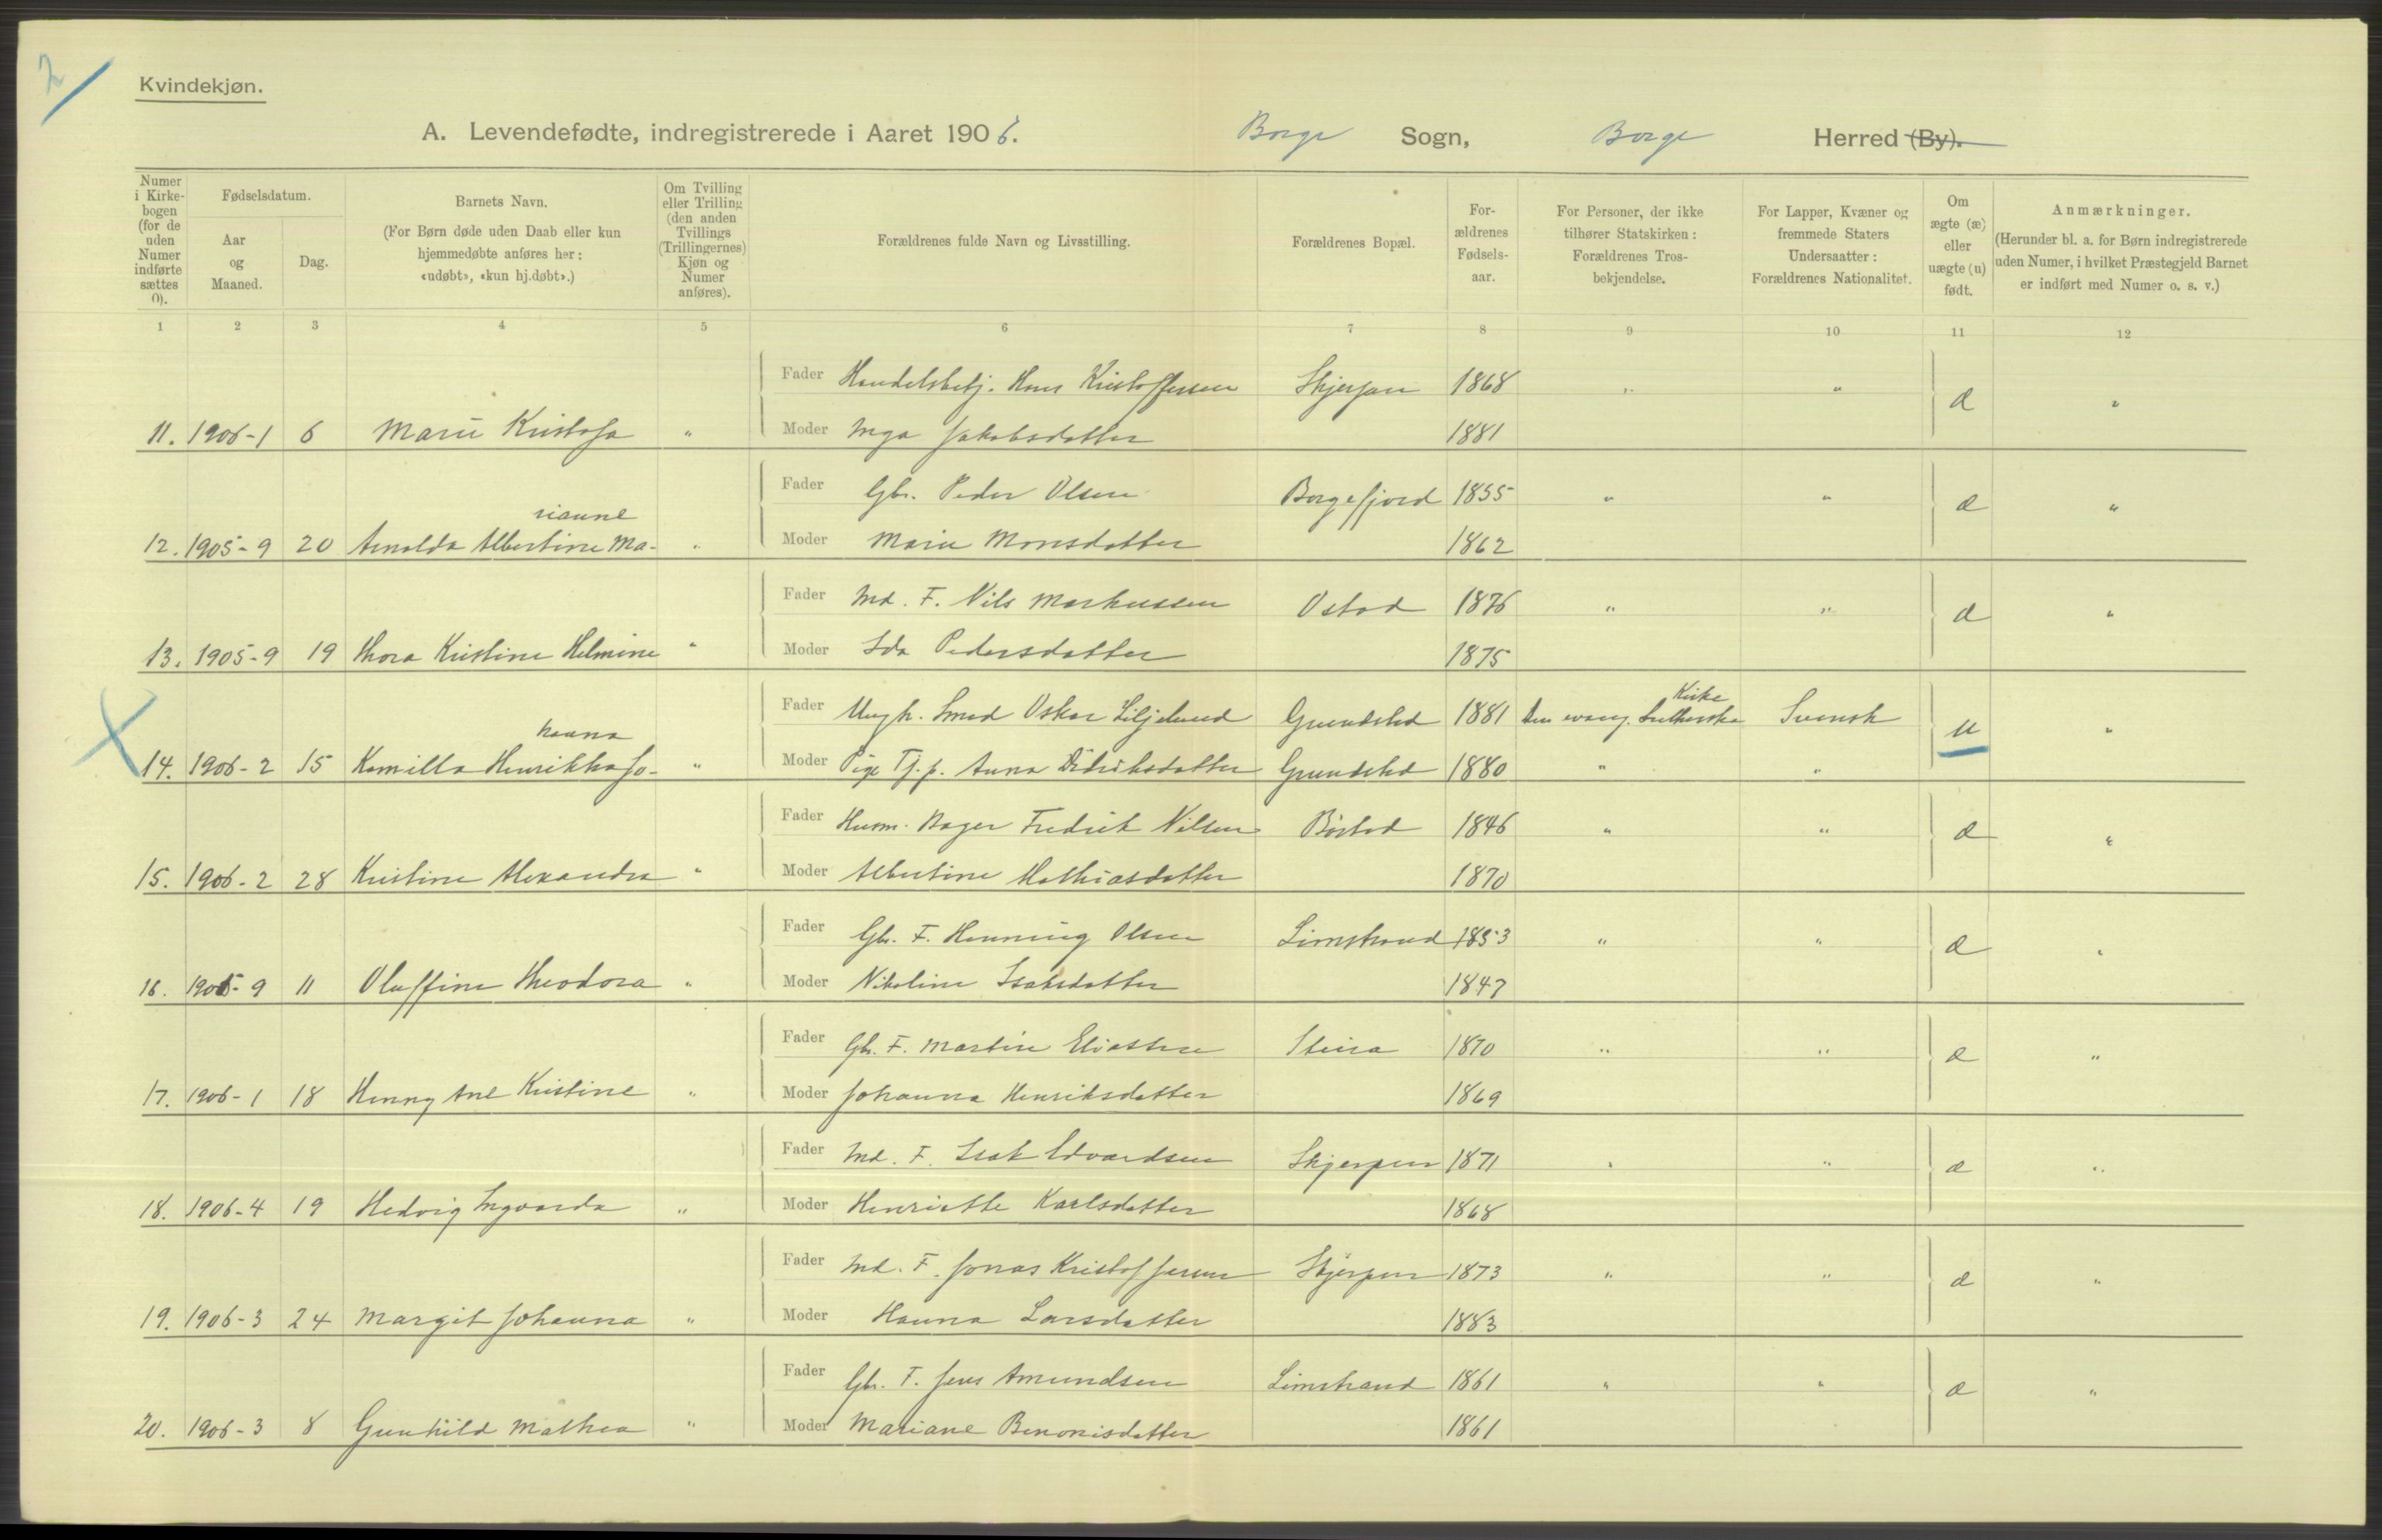 2
Kvindekjøn.
A. Levendefødte, indregistrerede i Aaret 1906. Borge Sogn, Borge Herred (By).
Numer i Kirke-bogen (for de uden Numer indførte sættes 0).
Fødselsdatum.
Aar og Maaned.
Dag.
Barnets Navn.
(For Børn døde uden Daab eller kun hjemmedøbte anføres her: «udøbt», «kun hj.døbt».)
Om Tvilling eller Trilling (den anden Tvillings (Trillingernes) Kjøn og Numer anføres).
Forældrenes fulde Navn og Livsstilling.
Forældrenes Bopæl.
For-ældrenes Fødsels-aar.
For Personer, der ikke tilhører Statskirken: Forældrenes Tros-bekjendelse.
For Lapper, Kvæner og fremmede Staters Undersaatter: Forældrenes Nationalitet.
Om ægte (æ) eller uægte (u) født.
Anmærkninger.
(Herunder bl. a. for Børn indregistrerede uden Numer, i hvilket Præstegjeld Barnet er indført med Numer o. s. v.)
1 2 3 4 5 6 7 8 9 10 11 12
Fader Handelsbetj. Hans Kristoffersen Skjerpen 1868 " " æ "
11. 1906-1 6 Marie Kristofa " Moder Inga Jakobsdatter 1881
Fader Gbr. Peder Olsen Borgefjord 1855 " " æ "
rianne
12. 1905-9 20 Arnolda Albertine Ma- " Moder Marie Monsdatter 1862
Fader Ind. F. Nils Markussen Ostad 1876 " " æ "
13. 1905-9 19 Thora Kristine Helmine " Moder Ida Pedersdatter 1875
Kirke
Fader Ungk. Smed Oskar Liljelund Grundstad 1881 Den evang. Lutherske Svensk u "
hanna
14. 1906-2 15 Kamilla Henrikka Jo- " Moder Pige Tj.p. Anna Didriksdatter Grundstad 1880 " "
Fader Husm. Bager Fredrik Nilsen Borstad 1846 " " æ "
15. 1906-2 28 Kristine Alexandra " Moder Albertine Mathiasdatter 1870
Fader Gbr. F. Henning Olsen Limstrand 1853 " " æ "
16. 1905-9 11 Oluffine Theodora " Moder Nikoline Isaksdatter 1847
Fader Gbr. F. Martin Eliassen Steira 1870 " " æ "
17. 1906-1 18 Henny Ane Kristine " Moder Johanna Henriksdatter 1869
Fader Ind. F. Isak Edvardsen Skjerpen 1871 " " æ "
18. 1906-4 19 Hedvig Ingvarda " Moder Henriette Karlsdatter 1868
Fader Ind. F. Jonas Kristoffersen Skjerpen 1873 " " æ "
19. 1906-3 24 Margit Johanna " Moder Hanna Larsdatter 1883
Fader Gbr. F. Jens Amundsen Limstrand 1861 " " æ "
20. 1906-3 8 Gunhild Mathea " Moder Mariane Benonisdatter 1861